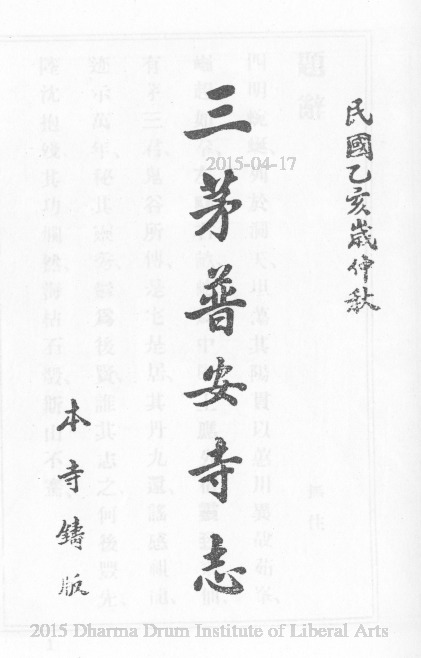 民國乙亥歲仲秋
三茅普安寺志
本寺鑄版
2015-04-17
2015 Dharma Drum Institute of Liberal Arts